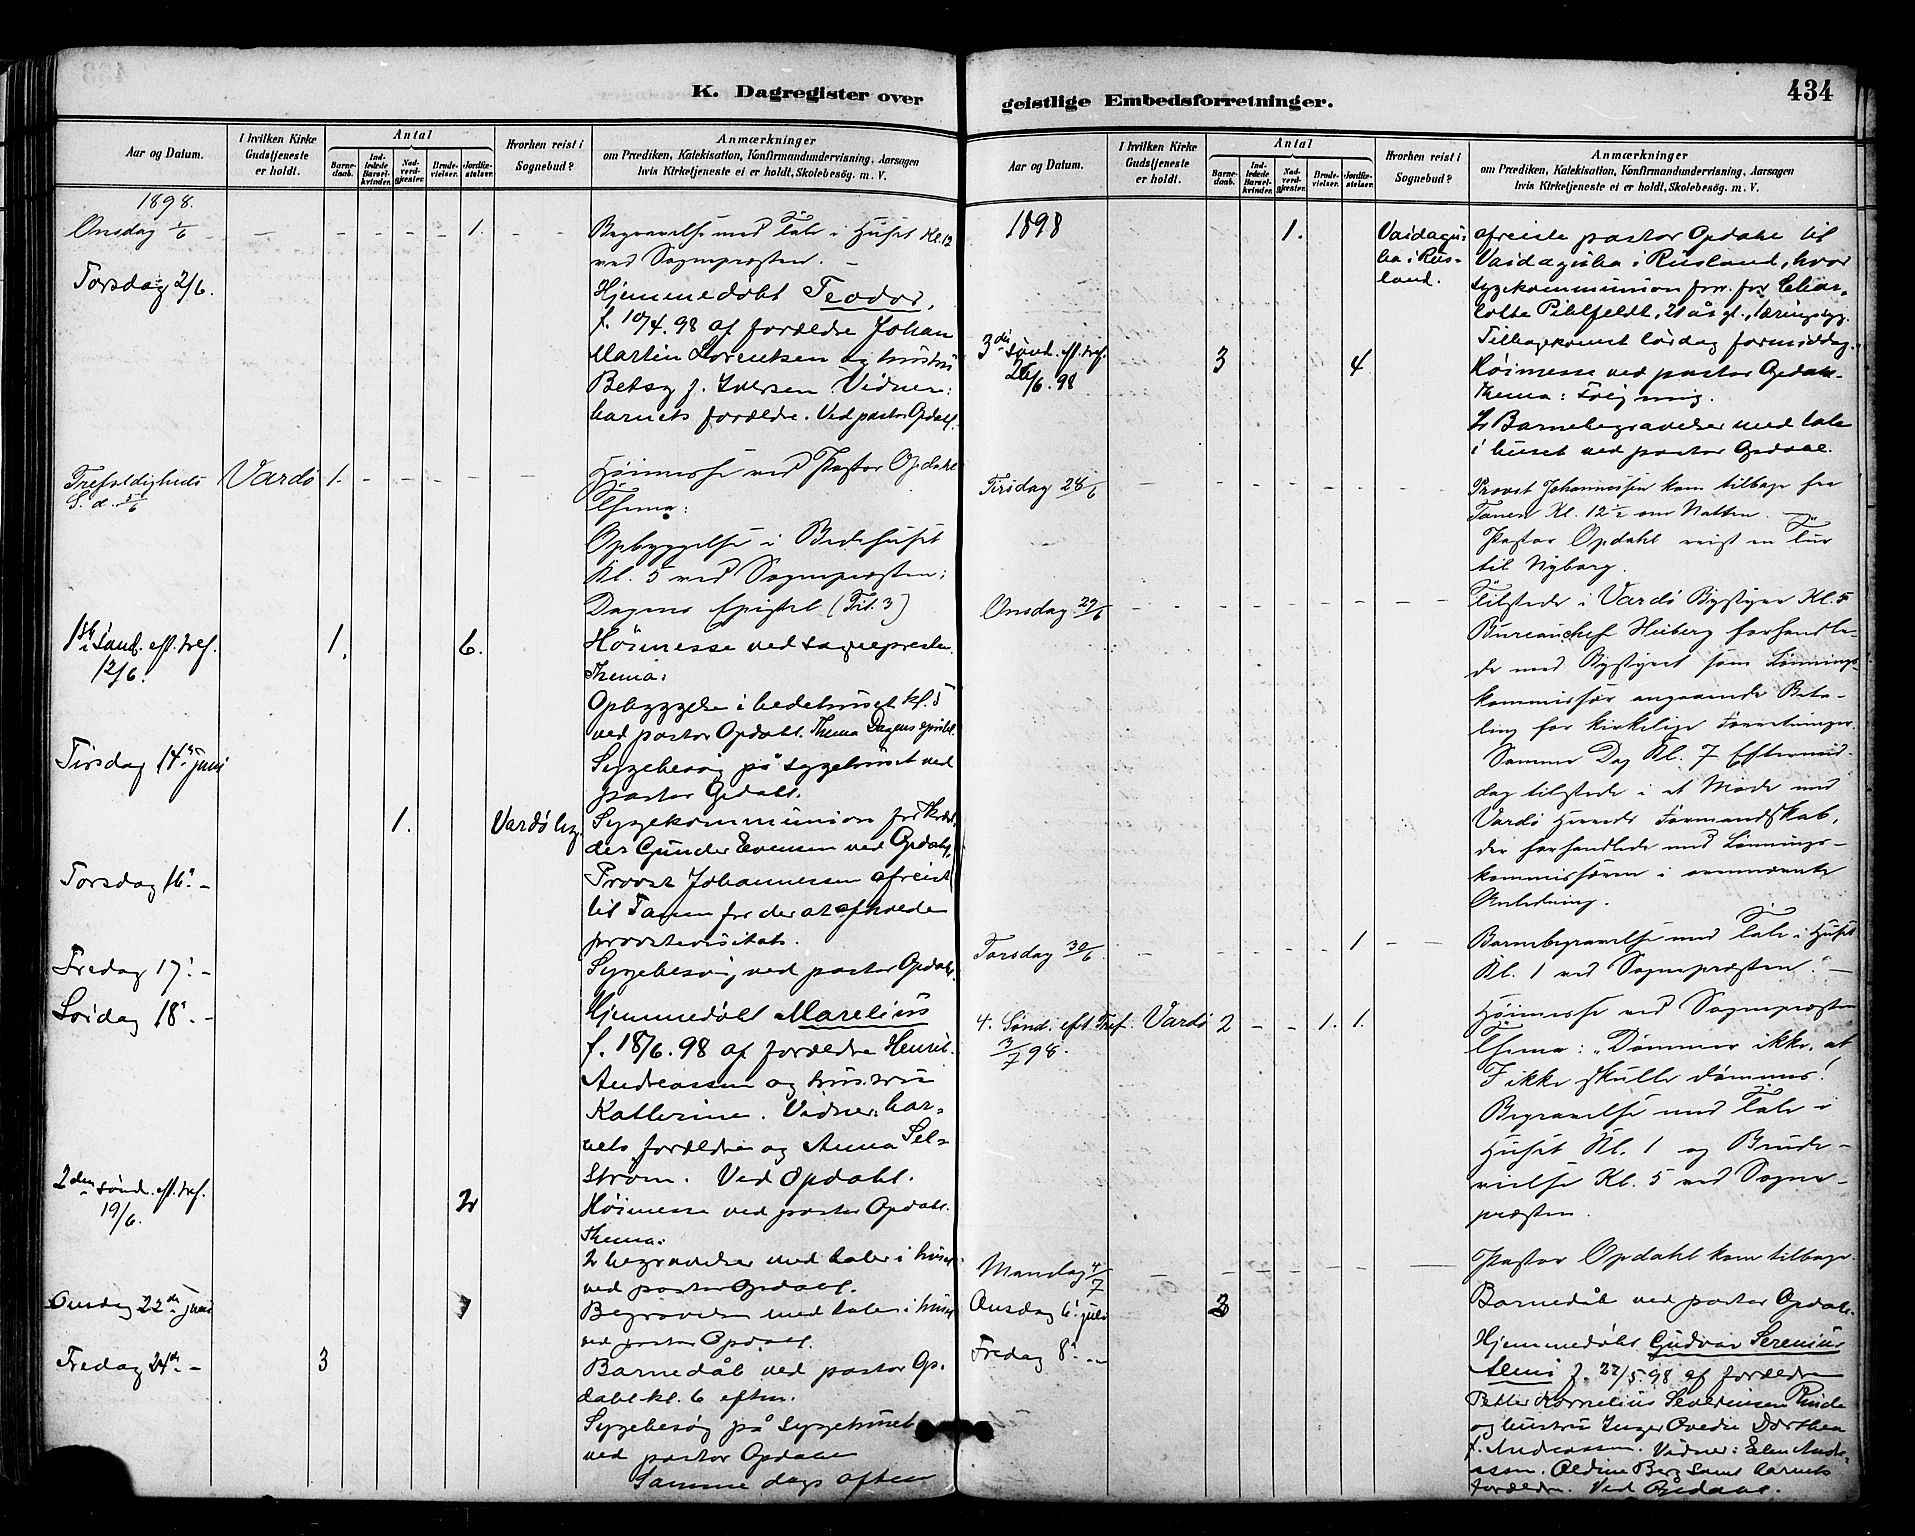 434
K. Dagregister over
Aar og Datum.
I hvilken Kirke Gudstjeneste er holdt.
Antal
Barnedaab.
Indledede Barselkvinder.
Nadverdgjester.
Brudevielser.
Jordfæstelser.
Hvorhen reist i Sognebud?
Anmærkninger
om Prædiken, Katekisation, Konfirmandundervisning, Aarsagen
hvis Kirketjeneste ei er holdt, Skolebesøg. m. V.
1898.
Onsdag 1/6 – – – – 1. – – Begravelse med Tale i Huset Kl. 12
ved Sognepræsten. –
Torsdag 2/6. Hjemmedøbt Teodor,
f. 10/4. 98 af forældre Johan
Martin Lorentsen og hustru
Betsy f. Iversen Vidner:
barnets forældre. Ved pastor Opdahl.
Trefoldigheds Vardø 1. – – – – – – Høimesse ved Pastor Opdahl
S. d. 5/6 Thema:
Opbyggelse i Bedehuset
Kl. 5 ved Sognepræsten:
Dagens Epistel (Tit. 3)
1ste sønd. eft. tref. 1. 6. Høimesse ved sognepresten
12/6. Thema:
Opbyggelse i bedehuset kl. 5
ved pastor Opdahl. Thema Dagens epistel.
Tirsdag 14. juni Sygebesøg på sygehuset ved
pastor Opdahl.
1. Vardø by. Sygekommunion for
Gunder Evensen ved Opdahl.
Torsdag 16. – Provst Johannessen afreist
til Tanen for der at afholde
provstevisitats.
Fredag 17. – Sygebesøg ved pastor Opdahl.
Lørdag 18. – Hjemmedøbt Marelius
f. 18/6. 98 af forældre Henrik
Andreassen og hustru
Katterine. Vidner: bar-
nets forældre og Anna Sel-
strøm. Ved Opdahl.
2den sønd. eft. tref. 2 Høimesse ved pastor Opdahl.
19/6. Thema:
2 begravelser med taler i huset
ved pastor Opdahl.
Onsdag 22de juni 1 Begravelse med tale i huset
ved pastor Opdahl.
Fredag 24de – 3 Barnedåb ved pastor Op-
dahl kl. 6 efterm.
Sygebesøg på sygehuset
ved pastor Opdahl
Samme dags aften
geistlige Embedsforretninger.
Aar og Datum.
I hvilken Kirke Gudstjeneste er holdt.
Antal
Barnedaab.
Indledede Barselkvinder.
Nadverdgjester.
Brudevielser.
Jordfæstelser.
Hvorhen reist i Sognebud?
Anmærkninger
om Prædiken, Katekisation, Konfirmandundervisning, Aarsagen
hvis Kirketjeneste ei er holdt, Skolebesøg. m. V.
1898 1. Vaidagu- afreiste pastor Opdahl til
ba i Rus- Vaidaguba i Rusland, hvor
land. sygekommunion forr. for Char-
lotte Pihlfeldt, 21 år gl.,
Tilbagekomst lørdag formiddag.
3die sønd. eft. tref. 3 4 Høimesse ved pastor Opdahl.
26/6. 98 Thema: Følg mig.
4 Barnebegravelser med tale
i huset ved pastor Opdahl.
Tirsdag 28/6 – – – – – – – Provst Johannessen kom tilbage fra
Tanen Kl. 12 1/2 om Natten. –
Pastor Opdahl reist en Tur
til Nyborg.
Onsdag 29/6 – – – – – – – Tilstede i Vardø Bystyre Kl. 5
Bureauchef Hiberg forhandle-
de med Bystyret som Lønnings-
kommissær angaaende Beta-
ling for kirkelige Forretninger.
Samme Dag Kl. 7 Eftermid-
dag tilstede i et Møde med
Vardø Herreds Formandskab,
der forhandlede med Lønnings-
kommissæren i ovennævnte
Anledning.
Torsdag 30/6 – – – – – 1 – – Barnebegravelse med Tale i Huset
Kl. 1 ved Sognepræsten. –
4. Sønd. eft. Tref. Vardø 2 – – 1. 1. Høimesse ved Sognepræsten
3/7 98. Thema: "Dømmer ikke, at
I ikke skulle dømmes!
Begravelse med Tale i
Huset Kl. 1 og Brude-
vielse Kl. 5 ved Sogne-
præsten.
Mandag 4/7 – – – – – – – Pastor Opdahl kom tilbage.
Onsdag 6. juli 3 Barnedåb ved pastor Opdahl.
Fredag 8. – Hjemmedøbt Gudvar Serenius
f. 27/5. 98 af forældre
Petter Kornelius Severinsen
og hustru Inger Ovedie Dorthea
f. Andreassen. Vidner: Elen Andre-
assen. Aldine Berg samt barnets
forældre. Ved Opdahl.